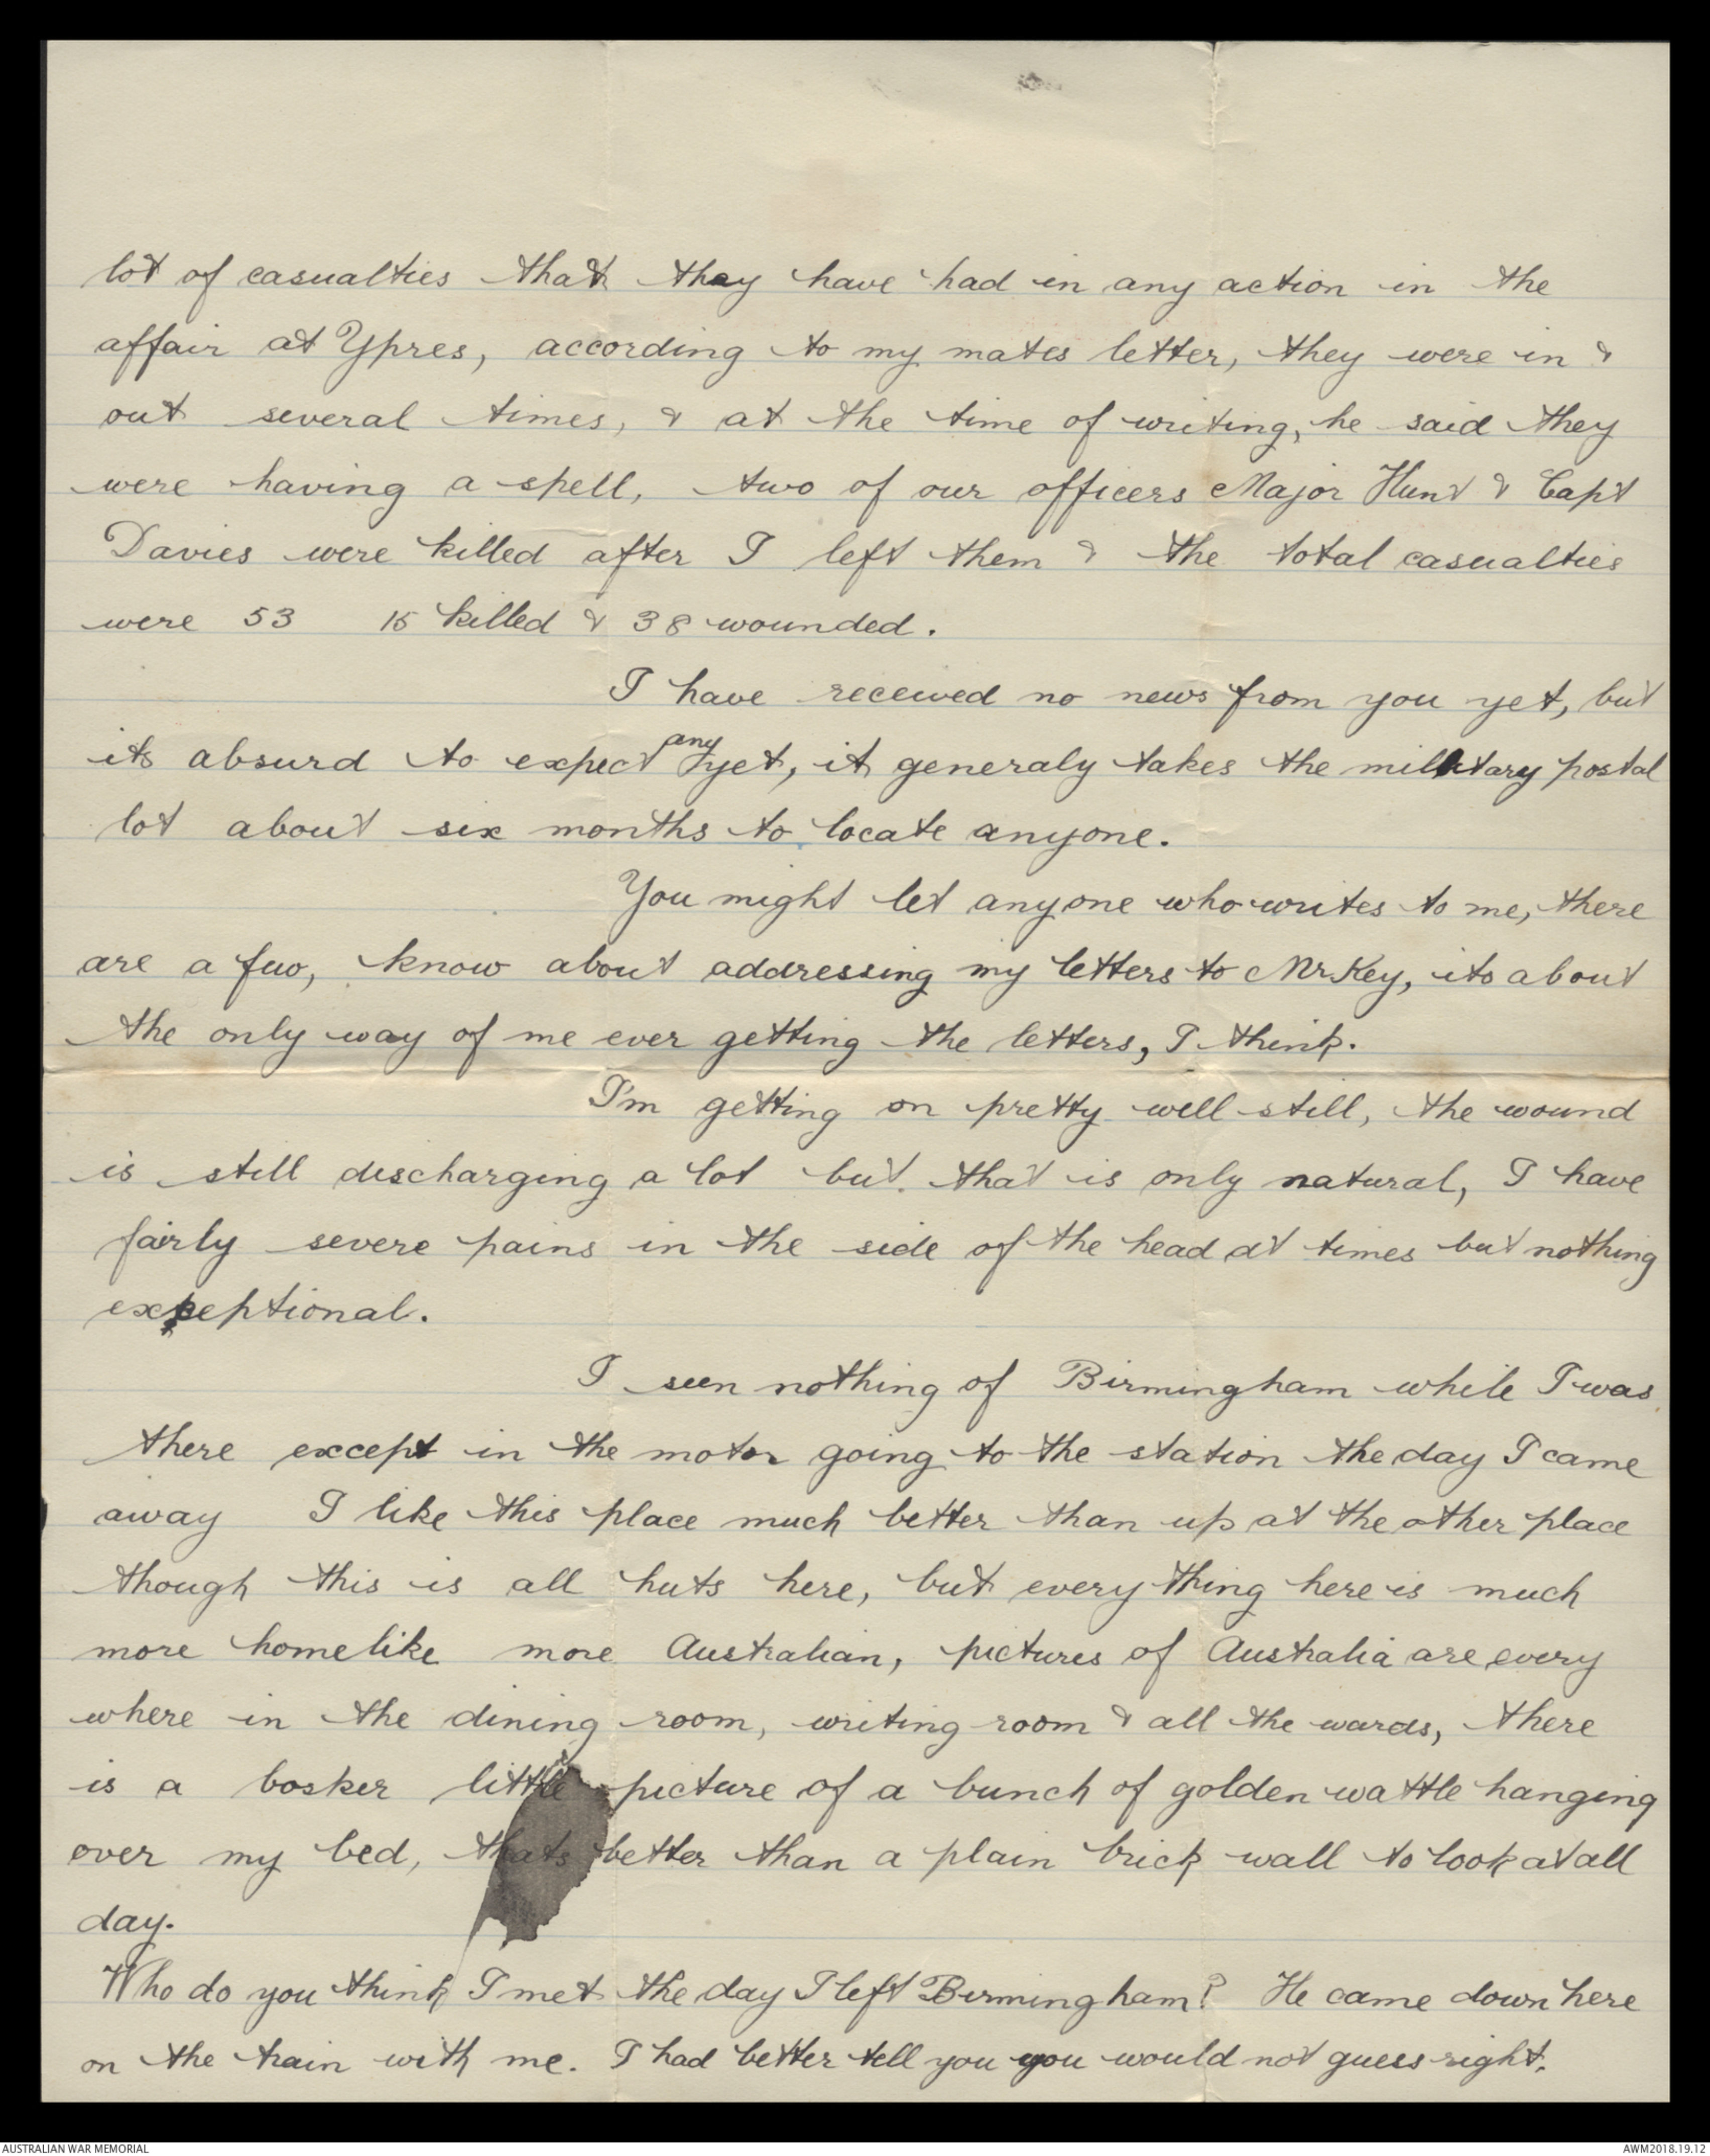 lot of casualties that they have had in any action in the
affair at Ypres, according to my mates letter, they were in &
out several times, & at the time of writing, he said they
were having a spell, two of our officers Major Hunt & Capt
Davies were killed after I left them & the total casualties
were 53 15 killed & 38 wounded.
I have received no news from you yet, but
its absurd to expect any yet, it generaly takes the military postal
lot about six months to locate anyone.
You might let anyone who writes to me, there
are a few, know about addressing my letters to Mr Key, its about
the only way of me ever getting the letters, I think.
I'm getting on pretty well still, the wound
is still discharging a lot but that is only natural, I have
fairly severe pains in the side of the head at times but nothing
exceptional.
I seen nothing of Birmingham while I was
there except in the motor going to the station the day I came
away I like this place much better than up at the other place
though this is all huts here, but every thing here is much
more homelike more Australian, pictures of Australia are every
where in the dining room, writing room & all the wards, there
is a bosker little picture of a bunch of golden wattle hanging
over my bed, thats better than a plain brick wall to look at all
day.
Who do you think I met the day I left Birmingham? He came down here
on the train with me. I had better tell you you would not guess right.
AUSTRALIAN WAR MEMORIAL
AWM2018.19.12